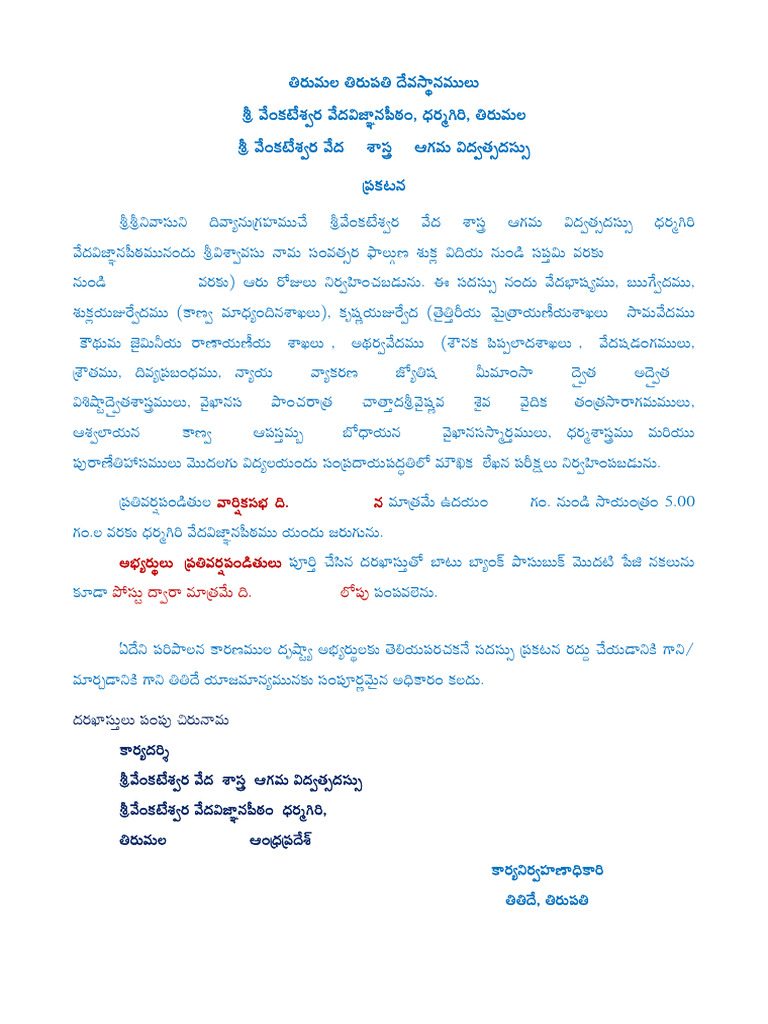 తిరుమల తిరుపతి దేవస్థానములు
శ్రీ వేంకటేశ్వర వేదవిజ్ఞానపీఠం, ధర్మగిరి, తిరుమల
శ్రీ వేంకటేశ్వర వేద శాస్త్ర ఆగమ విద్వత్సదస్సు
ప్రకటన
శ్రీశ్రీనివాసుని దివ్యానుగ్రహముచే శ్రీవేంకటేశ్వర వేద శాస్త్ర ఆగమ విద్వత్సదస్సు ధర్మగిరి
వేదవిజ్ఞానపీఠమునందు శ్రీవిశ్వావసు నామ సంవత్సర ఫాల్గుణ శుక్ల విదియ నుండి సప్తమి వరకు
నుండి వరకు) ఆరు రోజులు నిర్వహించబడును. ఈ సదస్సు నందు వేదభాష్యము, ఋగ్వేదము,
శుక్లయజుర్వేదము (కాణ్వ మాధ్యందినశాఖలు), కృష్ణయజుర్వేద (తైత్తిరీయ మైత్రాయణీయశాఖలు సామవేదము
కౌథుమ జైమినీయ రాణాయణీయ శాఖలు , అథర్వవేదము (శౌనక పిప్పలాదశాఖలు , వేదషడంగములు,
శ్రౌతము, దివ్యప్రబంధము, న్యాయ వ్యాకరణ జ్యోతిష మీమాంసా ద్వైత అద్వైత
విశిష్టాద్వైతశాస్త్రములు, వైఖానస పాంచరాత్ర చాత్తాదశ్రీవైష్ణవ శైవ వైదిక తంత్రసారాగమములు,
ఆశ్వలాయన కాణ్వ ఆపస్తమ్బ బోధాయన వైఖానసస్మార్తములు, ధర్మశాస్త్రము మరియు
పురాణేతిహాసములు మొదలగు విద్యలయందు సంప్రదాయపద్ధతిలో మౌఖిక లేఖన పరీక్షలు నిర్వహింపబడును.
ప్రతివర్షపండితుల వార్షికసభ ది. న మాత్రమే ఉదయం గం. నుండి సాయంత్రం 5.00
గం.ల వరకు ధర్మగిరి వేదవిజ్ఞానపీఠము యందు జరుగును.
అభ్యర్థులు ప్రతివర్షపండితులు పూర్తి చేసిన దరఖాస్తుతో బాటు బ్యాంక్ పాసుబుక్ మొదటి పేజి నకలును
కూడా పోస్టు ద్వారా మాత్రమే ది. లోపు పంపవలెను.
ఏదేని పరిపాలన కారణముల దృష్ట్యా అభ్యర్థులకు తెలియపరచకనే సదస్సు ప్రకటన రద్దు చేయడానికి గాని/
మార్చడానికి గాని తితిదే యాజమాన్యమునకు సంపూర్ణమైన అధికారం కలదు.
దరఖాస్తులు పంపు చిరునామ
కార్యదర్శి
శ్రీవేంకటేశ్వర వేద శాస్త్ర ఆగమ విద్వత్సదస్సు
శ్రీవేంకటేశ్వర వేదవిజ్ఞానపీఠం ధర్మగిరి,
తిరుమల ఆంధ్రప్రదేశ్
కార్యనిర్వహణాధికారి
తితిదే, తిరుపతి